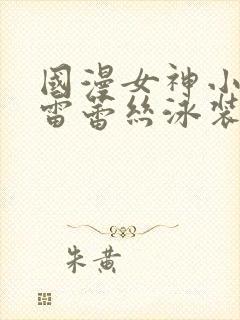 國漫女神小
雷蕾絲泳裝
朱黃